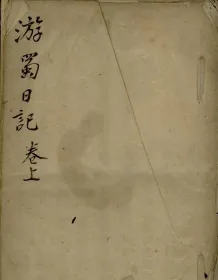 游蜀日記 卷上